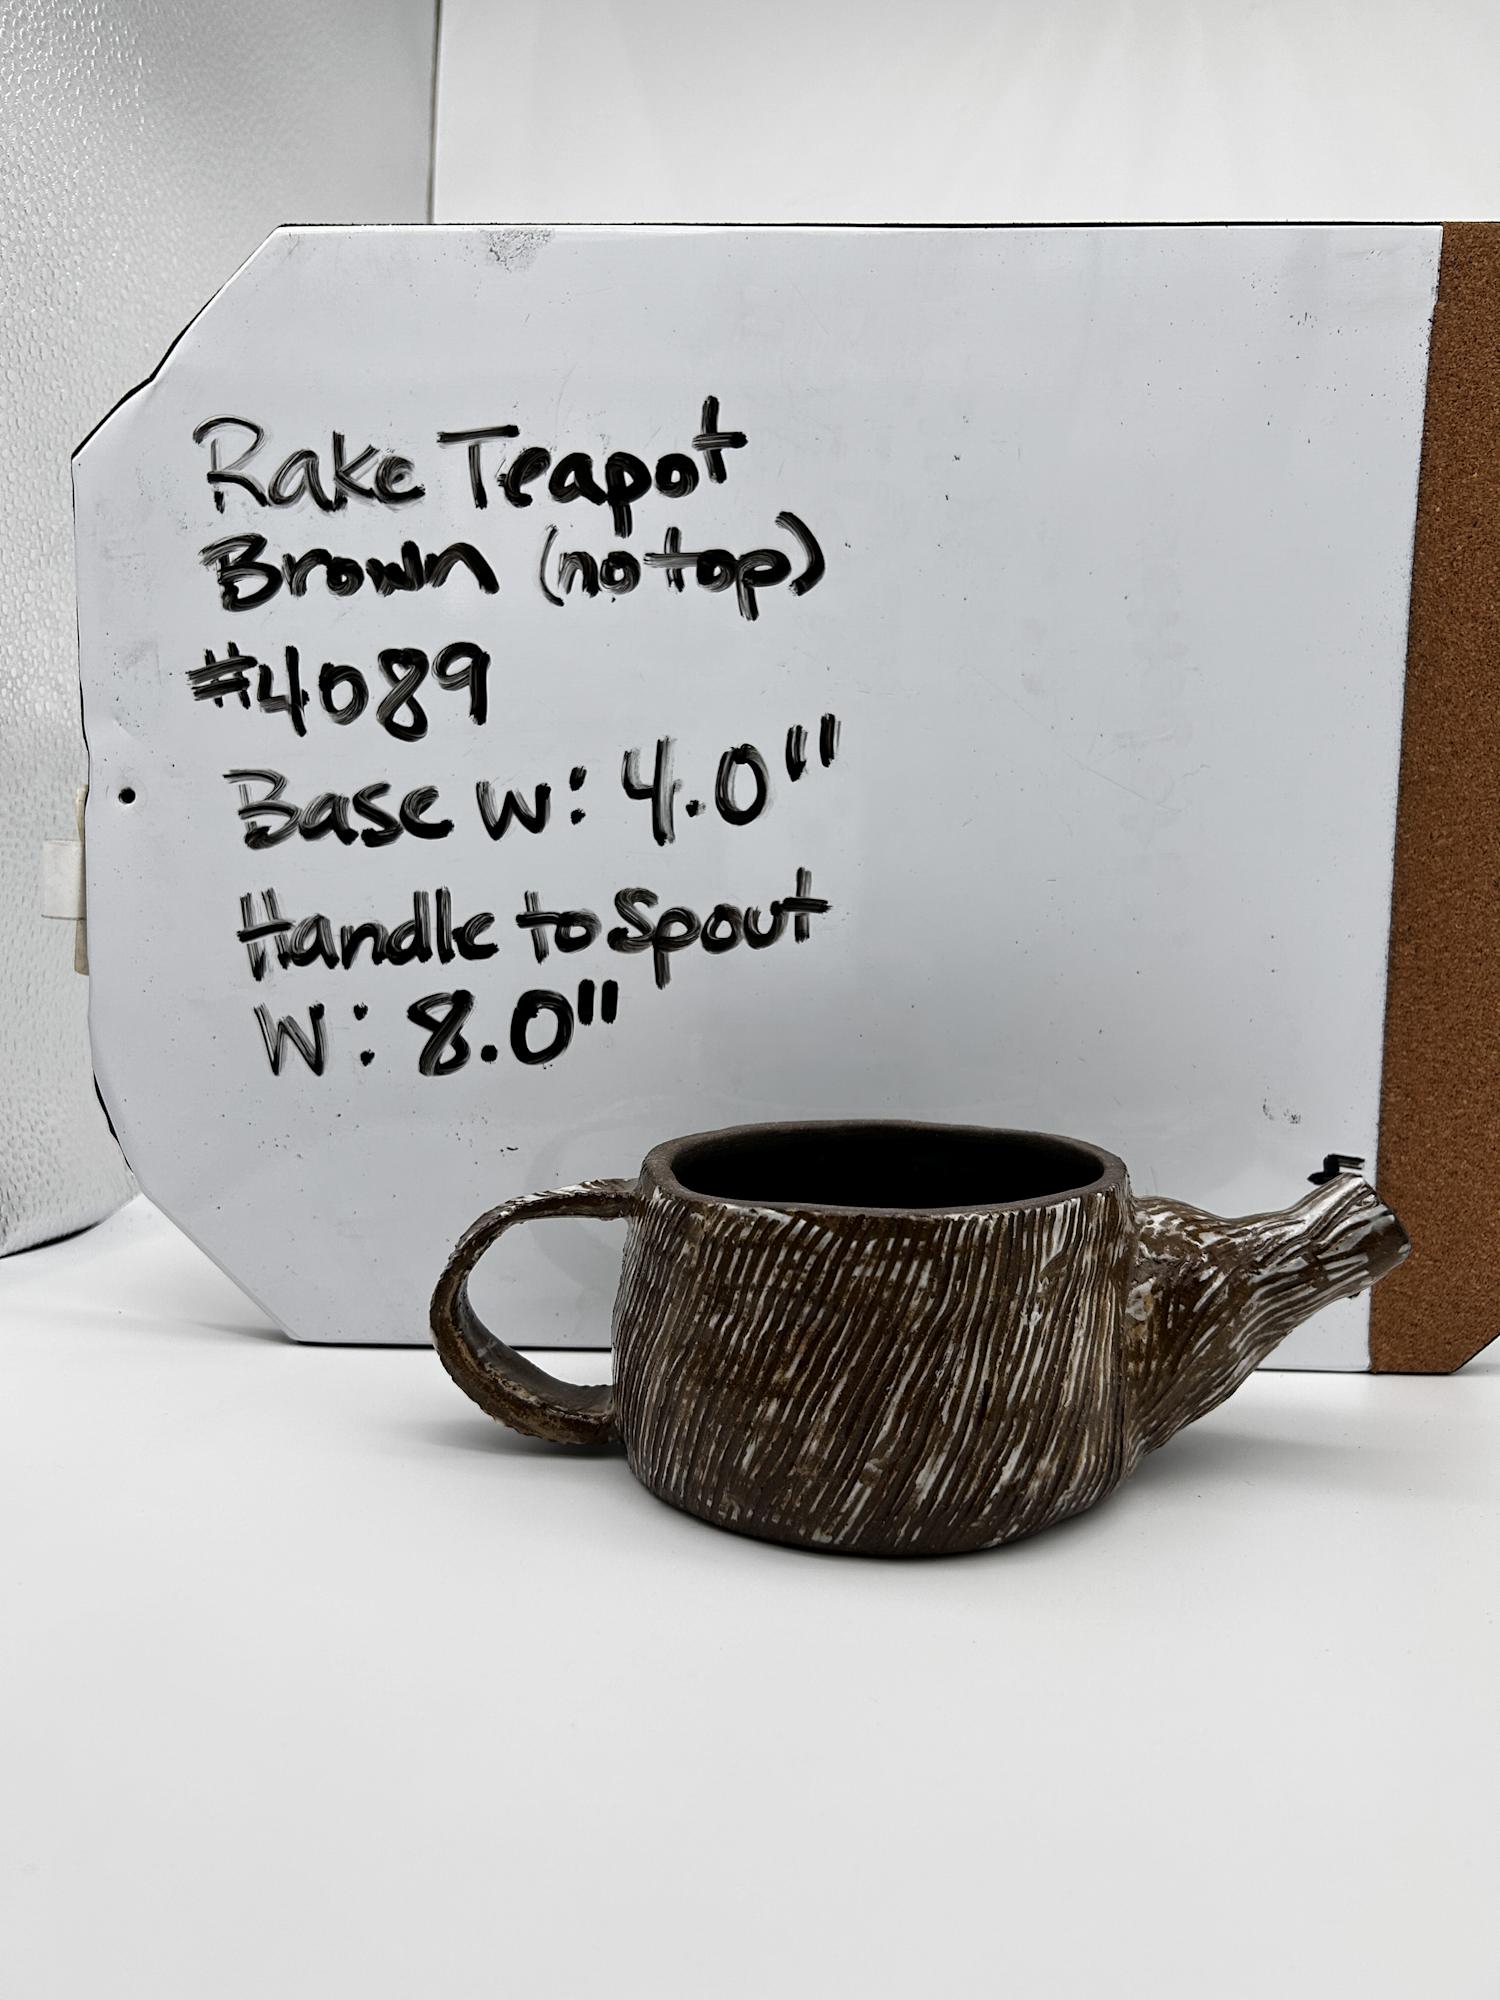 Rake Teapot
Brown (no top)
#4089
Base W: 4.0"
Handle to Spout
W: 8.0"